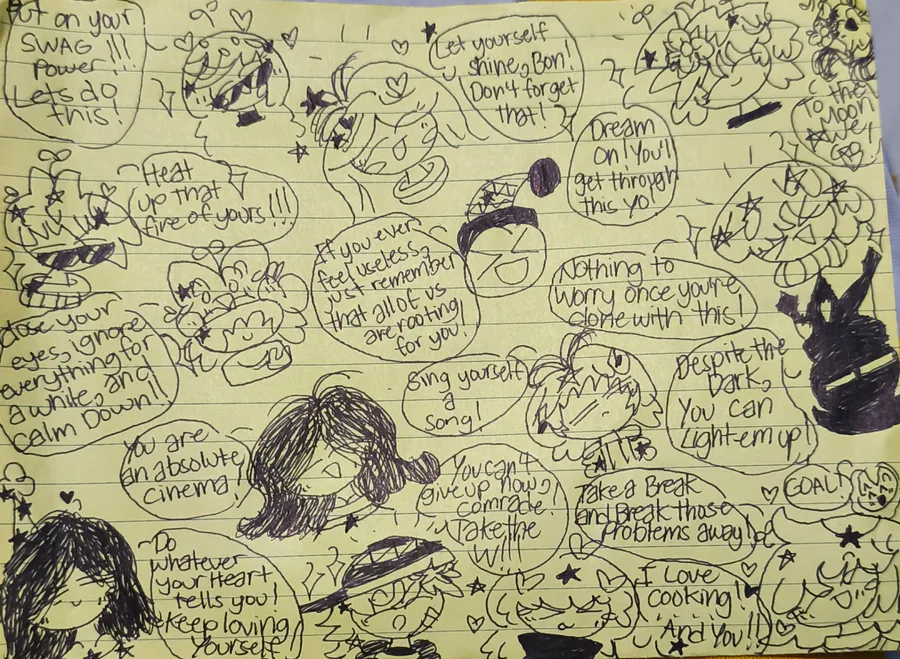 Put on your
SWAG !!!
Power!!!
Lets do
this!
Let yourself
shine, Bon!
Don't forget
that!
To the
Moon
We
Go!
Dream
on! You'll
get through
this yo!
Heat
up that
fire of yours!!!
If you ever
feel useless,
just remember
that all of us
are rooting
for you!
Nothing to
worry once you're
done with this!
Close your
eyes, ignore
everything for
a while, and
calm Down!!
Sing yourself
a
song!
Despite the
Dark,
You can
Light-em up!
You are
an absolute
cinema!
You can't
give up now,
comrade!
Take the
Will
Take a Break
and Break those
Problems away!
GOAL!
Do
whatever
your Heart
tells you!
Keep loving
Yourself!
I Love
cooking!
And You!!